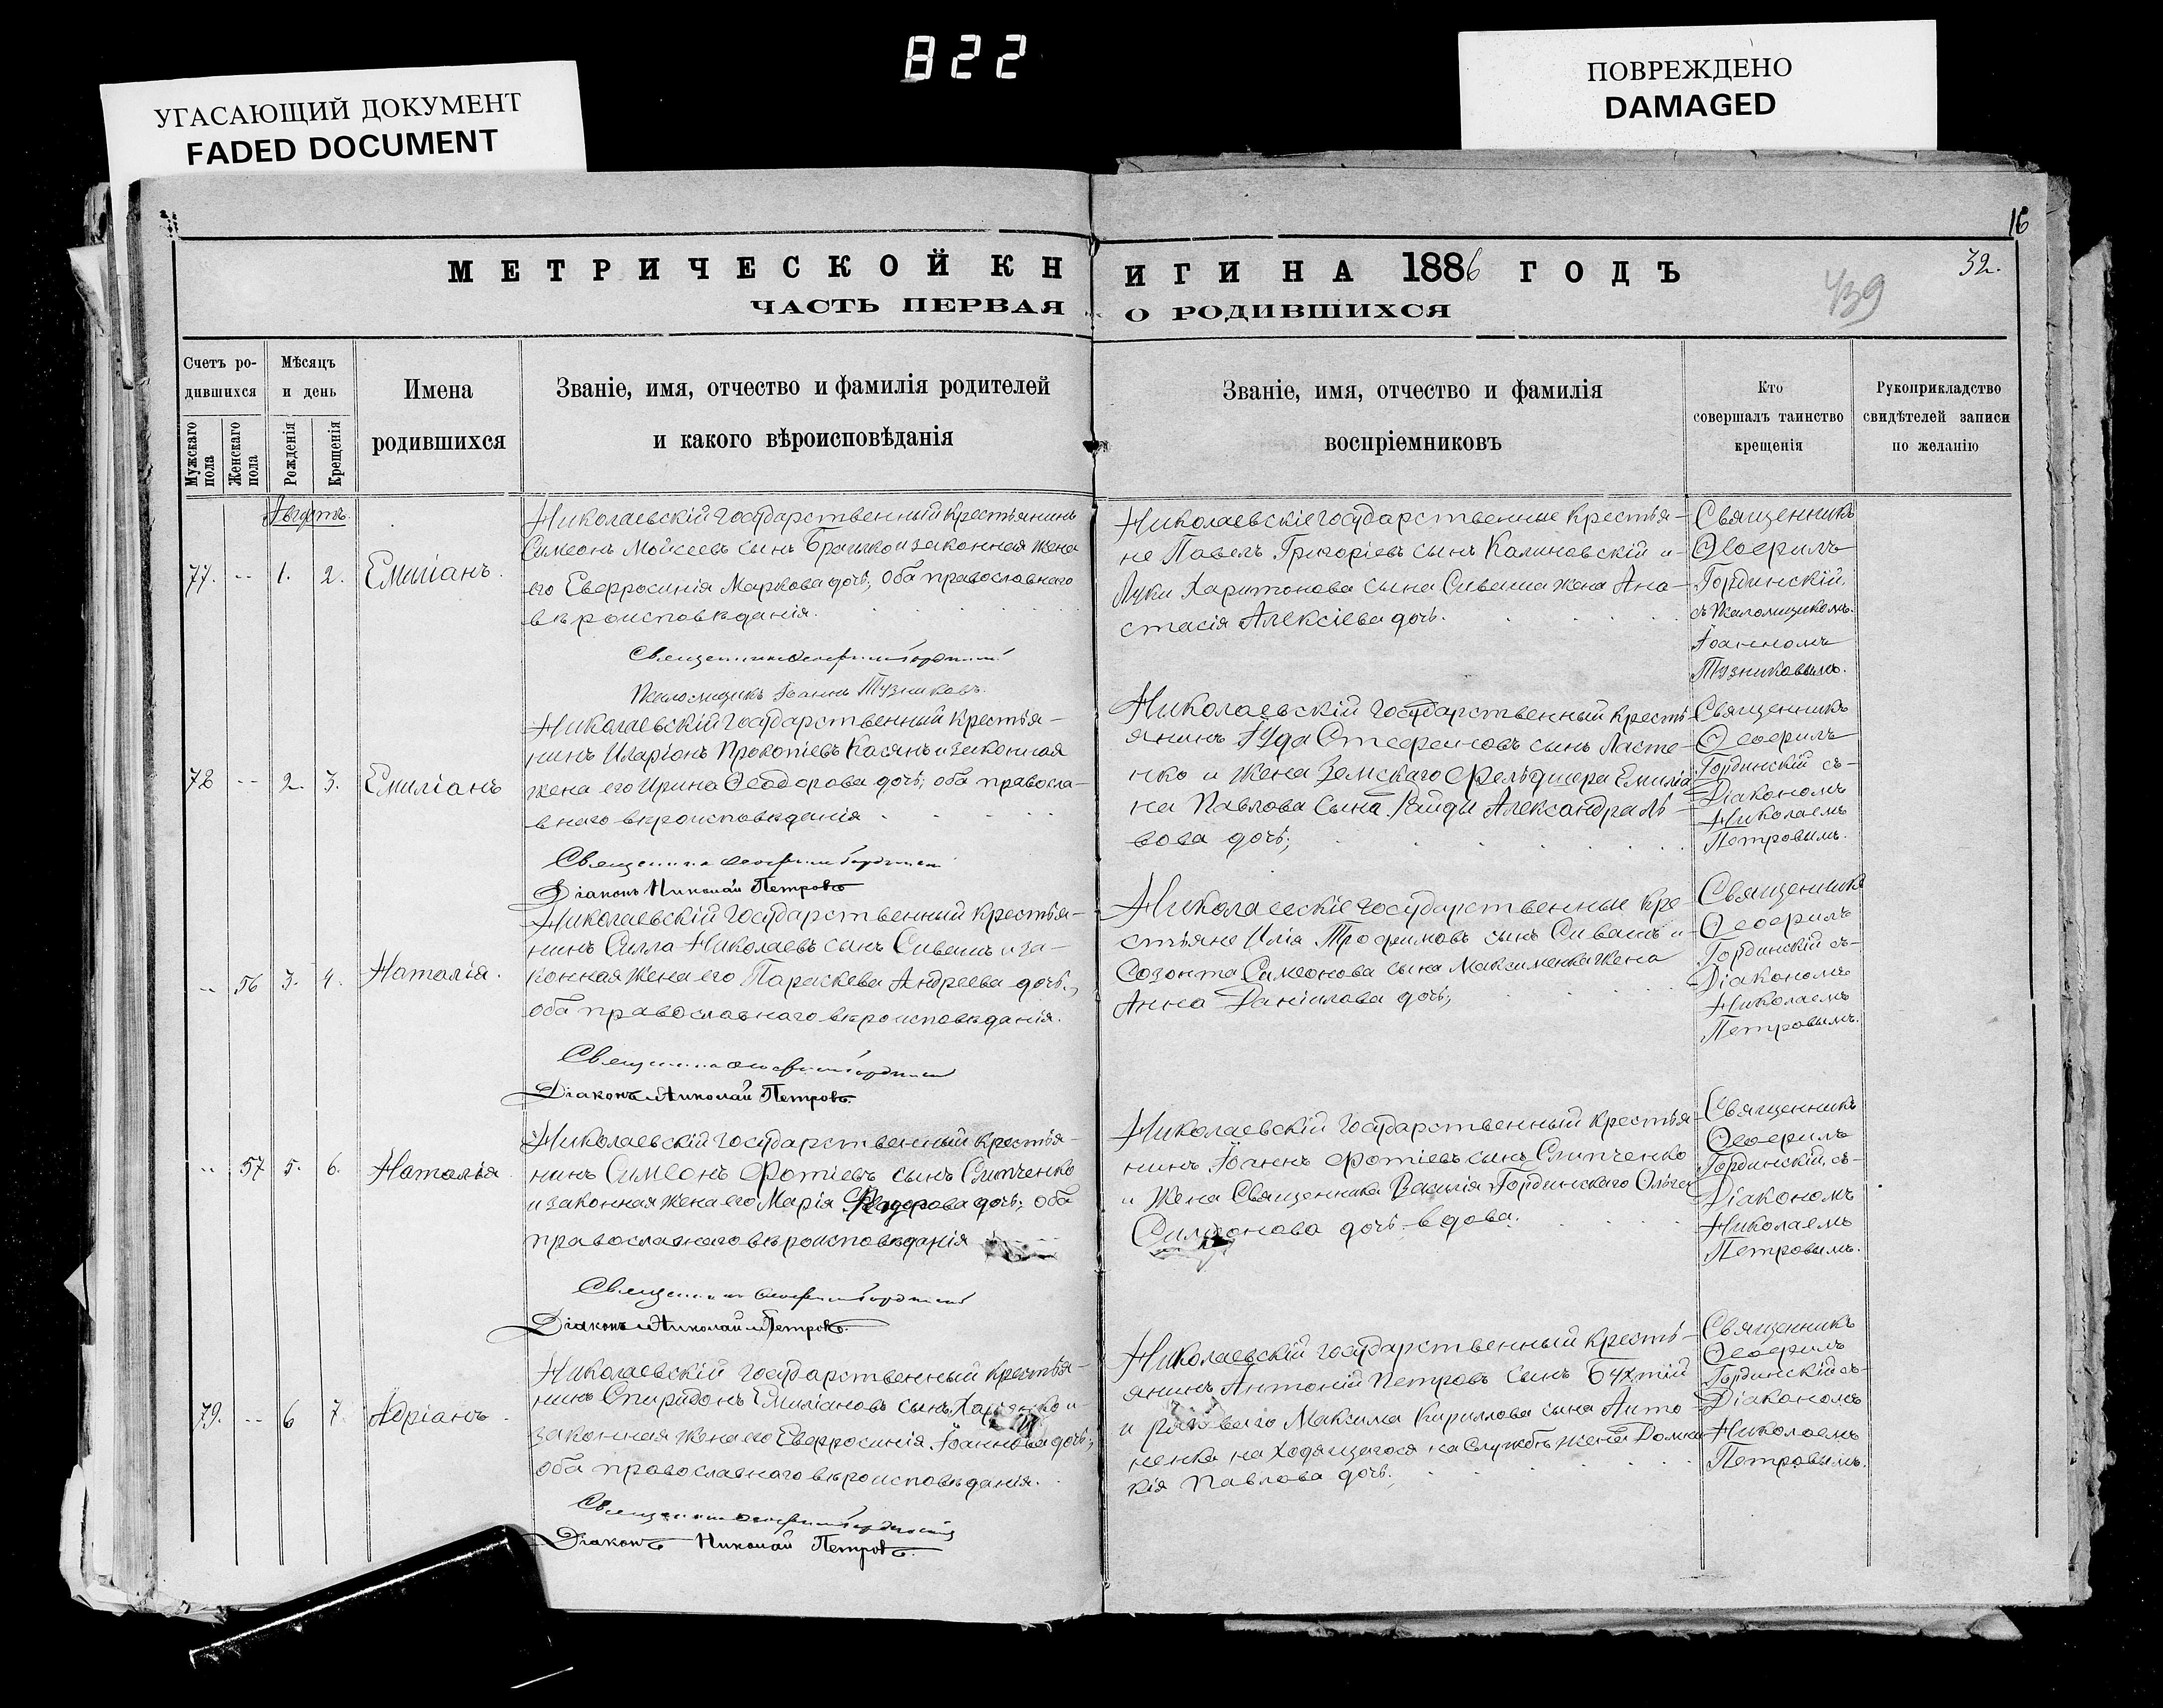 822
УГАСАЮЩИЙ ДОКУМЕНТ
FADED DOCUMENT
ПОВРЕЖДЕНО
DAMAGED
16
МЕТРИЧЕСКОЙ КНИГИ НА 1886 ГОДЪ
32.
439
ЧАСТЬ ПЕРВАЯ О РОДИВШИХСЯ
Счетъ ро-
дившихся
Мужскаго пола
Женскаго пола
Мѣсяцъ
и день
Рожденія
Крещенія
Имена
родившихся
Званіе, имя, отчество и фамилія родителей
и какого вѣроисповѣданія
Званіе, имя, отчество и фамилія
воспріемниковъ
Кто
совершалъ таинство
крещенія
Рукоприкладство
свидѣтелей записи
по желанію
Августъ
77. -- 1. 2. Емиліанъ.
Николаевскій государственный крестьянинъ
Симеонъ Моисеевъ сынъ и законная жена
его Евфросинія Маркова дочь, оба православнаго
вѣроисповѣданія.
Николаевскіе государственные крестья-
не Павелъ Григоріевъ сынъ Калиновскій и
Луки Харитонова сына Сиваша жена Ана-
стасія Алексіева дочь.
Священникъ
Ѳеофилъ
Гординскій
съ Псаломщикомъ
Іоанномъ
Тузниковымъ.
Священникъ Ѳеофилъ Гординскій
Псаломщикъ Іоаннъ Тузниковъ.
78 -- 2. 3. Емиліанъ
Николаевскій государственный крестья-
нинъ Иларіонъ Прокопіевъ Касянъ и законная
жена его Ирина Ѳеодорова дочь, оба правосла-
внаго вѣроисповѣданія
Николаевскій государственный кресть-
янинъ Іуда Стефановъ сынъ Ласте-
нко и жена Земскаго фельдшера Емиліа
на Павлова сына Александра Ль-
вова дочь;
Священникъ
Ѳеофилъ
Гординскій съ-
Діакономъ
Николаемъ
Петровымъ.
Священникъ Ѳеофилъ Гординскій
Діаконъ Николай Петровъ
-- 56 3. 4. Наталія.
Николаевскій государственный крестья-
нинъ Силла Николаевъ сынъ Сивашъ и за-
конная жена его Параскева Андреева дочь,
оба православнаго вѣроисповѣданія.
Николаевскіе государственные кре-
стьяне Илія Трофимовъ сынъ Сивашъ и
Созонта Симеонова сына Максименка жена
Анна Даніилова дочь,
Священникъ
Ѳеофилъ
Гординскій съ-
Діакономъ
Николаемъ
Петровымъ.
Священникъ Ѳеофилъ Гординскій
Діаконъ Николай Петровъ.
-- 57 5. 6. Наталія
Николаевскій государственный крестья-
нинъ Симеонъ Фотіевъ сынъ Слипченко
и законная жена его Марія дочь; оба
православнаго вѣроисповѣданія
Николаевскій государственный крестья-
нинъ Іоаннъ Фотіевъ сынъ Слипченко
и жена Священника Василія Гординскаго Ольга
дочь вдова.
Священникъ
Ѳеофилъ
Гординскій, съ-
Діакономъ
Николаемъ
Петровымъ.
Священникъ Ѳеофилъ Гординскій
Діаконъ Николай Петровъ.
79. -- 6 7. Адріанъ.
Николаевскій государственный крестья-
нинъ Спиридонъ Емиліановъ сынъ и
законная жена его Евфросинія Іоаннова дочь;
оба православнаго вѣроисповѣданія.
Николаевскій государственный кресть-
янинъ Антоній Петровъ сынъ Бухтій
и рядоваго Максима Кириллова сына Анто-
ненка находящагося на службѣ жена Домни
кія Павлова дочь.
Священникъ
Ѳеофилъ
Гординскій съ-
Діакономъ
Николаемъ
Петровымъ.
Священникъ Ѳеофилъ Гординскій
Діаконъ Николай Петровъ.